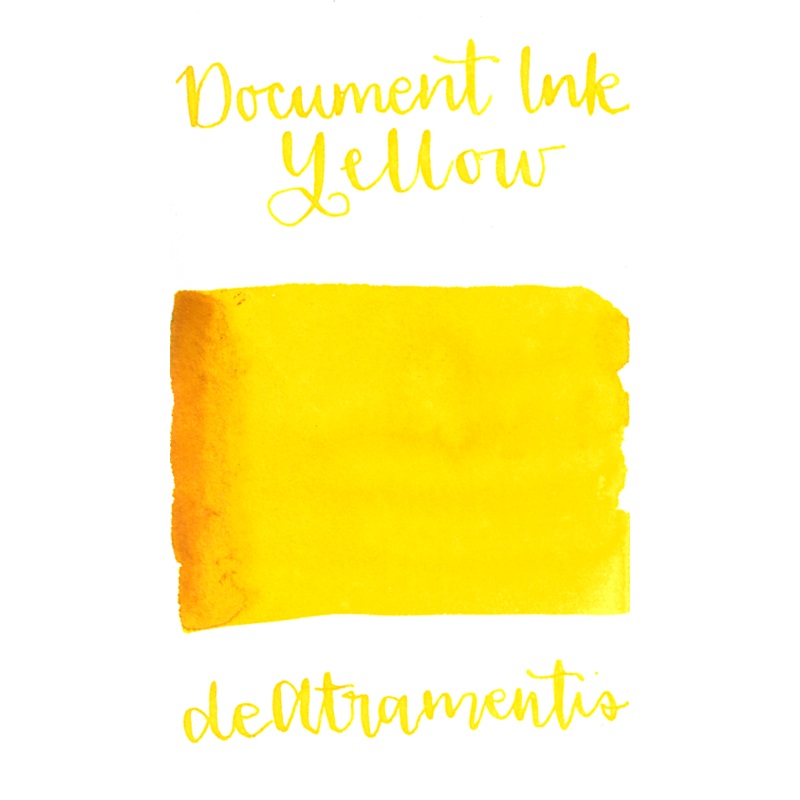 Document Ink
Yellow
deAtramentis